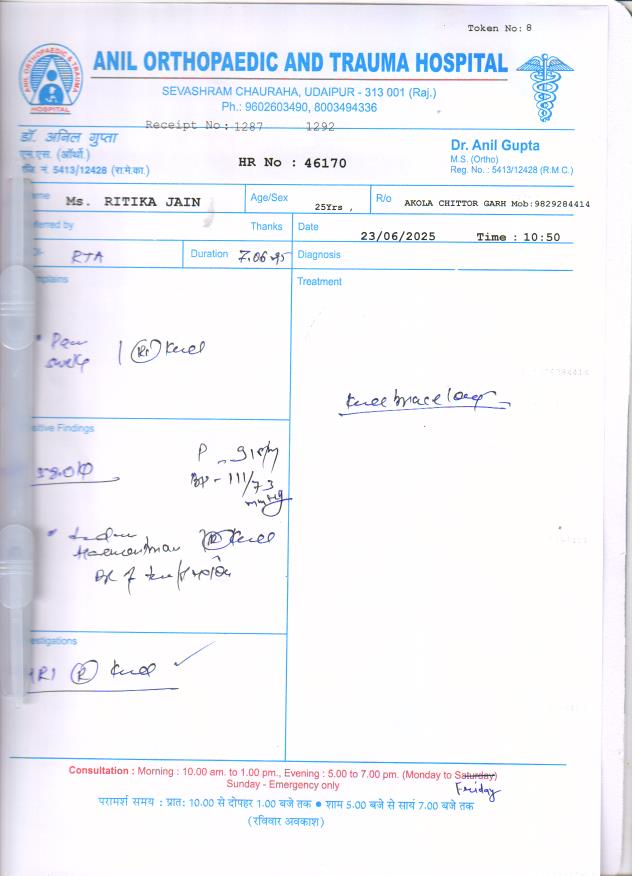 Token No: 8
ANIL ORTHOPAEDIC & TRAUMA HOSPITAL
ANIL ORTHOPAEDIC AND TRAUMA HOSPITAL
SEVASHRAM CHAURAHA, UDAIPUR - 313 001 (Raj.)
Ph.: 9602603490, 8003494336
Receipt No: 1287 1292
डॉ. अनिल गुप्ता
एम.एस. (ऑर्थो.)
रजि. नं. 5413/12428 (रा.मे.का.)
HR No : 46170
Dr. Anil Gupta
M.S. (Ortho)
Reg. No. : 5413/12428 (R.M.C.)
ame Ms. RITIKA JAIN
Age/Sex 25Yrs ,
R/o AKOLA CHITTOR GARH Mob:9829284414
ferred by Thanks
Date 23/06/2025 Time : 10:50
RTA
Duration 7.06.25
Diagnosis
mplains
Treatment
Pain
| (Rt) Knee
Knee brace long
sitive Findings
P -
BP - 111/73
mmHg
(R) Knee
estigations
MRI (R) Knee ✓
Consultation : Morning : 10.00 am. to 1.00 pm., Evening : 5.00 to 7.00 pm. (Monday to Saturday)
Friday
Sunday - Emergency only
परामर्श समय : प्रात: 10.00 से दोपहर 1.00 बजे तक ● शाम 5.00 बजे से सायं 7.00 बजे तक
(रविवार अवकाश)